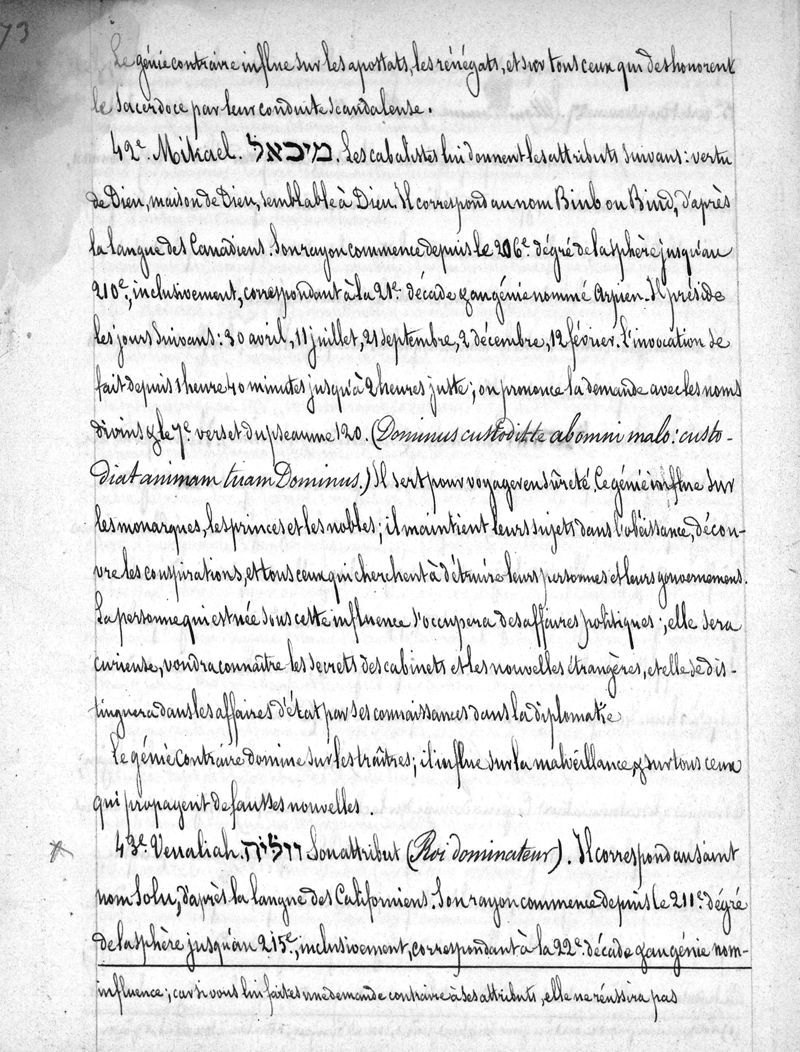 73
Le génie contraire influe sur les apostats, les rénégats, et sur tous ceux qui deshonorent
le sacerdoce par leur conduite scandaleuse.
42e. Mikael. מיכאל. Les cabalistes lui donnent les attributs suivans : vertu
de Dieu, maison de Dieu, semblable à Dieu. Il correspond au nom Binb ou Bind, d'après
la langue des Canadiens. Son rayon commence depuis le 206e. dégré de la sphère jusqu'au
210e., inclusivement, correspondant à la 21e. décade & au génie nommé Arpien. Il préside
les jours suivans : 30 avril, 11 juillet, 21 septembre, 2 décembre, 12 février. L'invocation se
fait depuis 1 heure 40 minutes jusqu'à 2 heures juste ; on prononce la demande avec les noms
divins & le 7e. verset du pseaume 120. (Dominus custodit te ab omni malo : custo-
diat animam tuam Dominus.) Il sert pour voyager en sûreté. Ce génie influe sur
les monarques, les princes et les nobles ; il maintient leurs sujets dans l'obéissance, décou-
vre les conspirations, et tous ceux qui cherchent à détruire leurs personnes et leurs gouvernemens.
La personne qui est née sous cette influence s'occupera des affaires politiques ; elle sera
curieuse, voudra connaître les secrets des cabinets et les nouvelles étrangères, et elle se dis-
tinguera dans les affaires d'état par ses connaissances dans la diplomatie
Le génie contraire domine sur les traîtres ; il influe sur la malvéillance, & sur tous ceux
qui propagent de fausses nouvelles.
43e. Veualiah. ווליה Son attribut (Roi dominateur). Il correspond au saint
nom Solu, d'après la langue des Californiens. Son rayon commence depuis le 211e. dégré
de la sphère jusqu'au 215e., inclusivement, correspondant à la 22e. décade & au génie nom-
influence ; car si vous lui faites une demande contraire à ses attributs, elle ne réussira pas